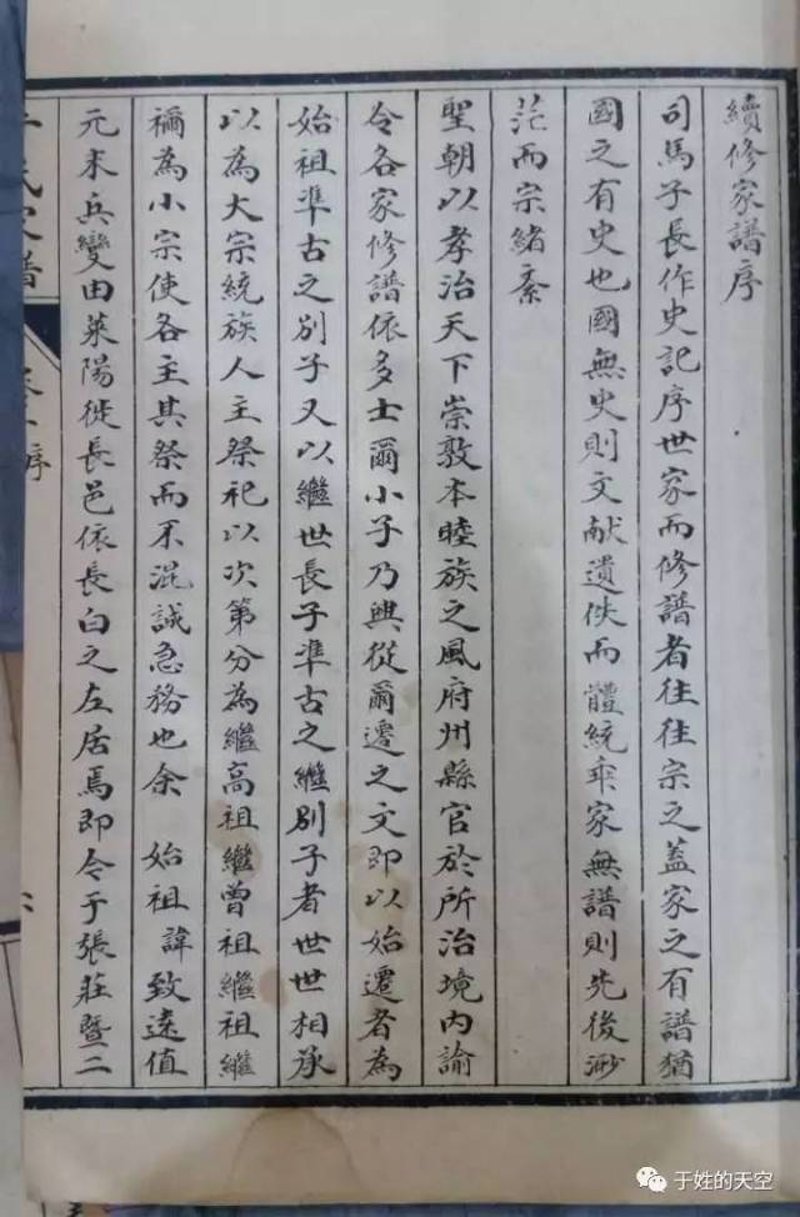 續修家譜序
司馬子長作史記序世家而修譜者往往宗之蓋家之有譜猶
國之有史也國無史則文献遺佚而體統乖家無譜則先後渺
茫而宗緒紊
聖朝以孝治天下崇敦本睦族之風府州縣官於所治境内諭
令各家修譜依多士爾小子乃興從爾遷之文即以始遷者為
始祖準古之别子又以繼世長子準古之繼别子者世世相承
以為大宗統族人主祭祀以次第分為繼高祖繼曾祖繼祖繼
禰為小宗使各主其祭而不混誠急務也余 始祖 諱致遠值
元末兵變由萊陽徙長邑依長白之左居焉即今于張莊暨二
氏家譜
序
于姓的天空